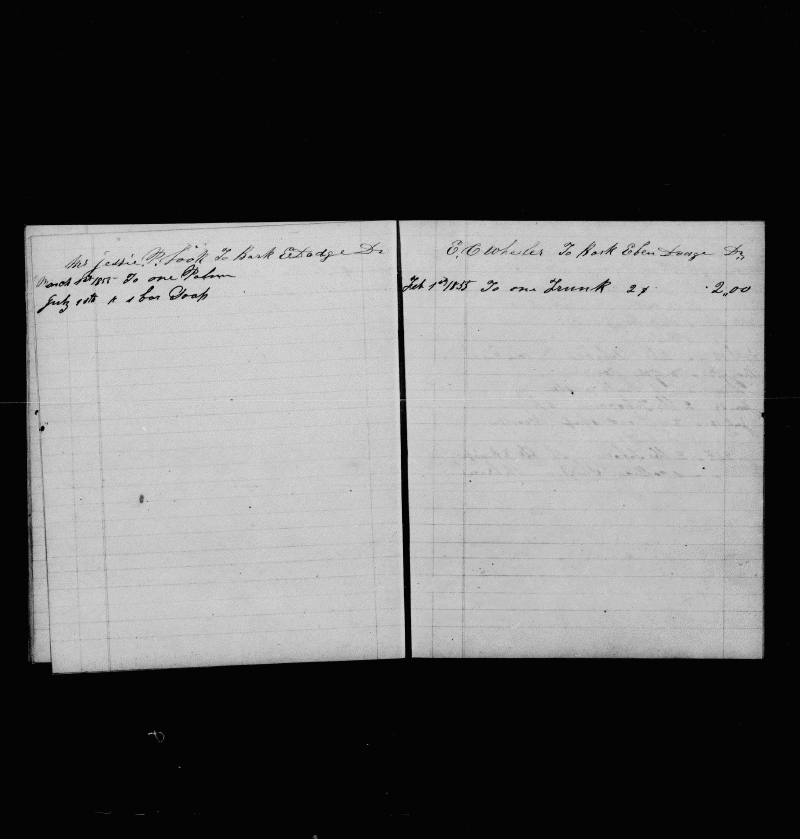 Mr Jessie P. Look To Bark E Dodge Dr
March 1st 1855 To one Palm
July 10th " 1 bar Soap
E. C Wheeler To Bark Eben Dodge Dr,
Feb 1st/1855 To one Trunk 2 $ 2,,00